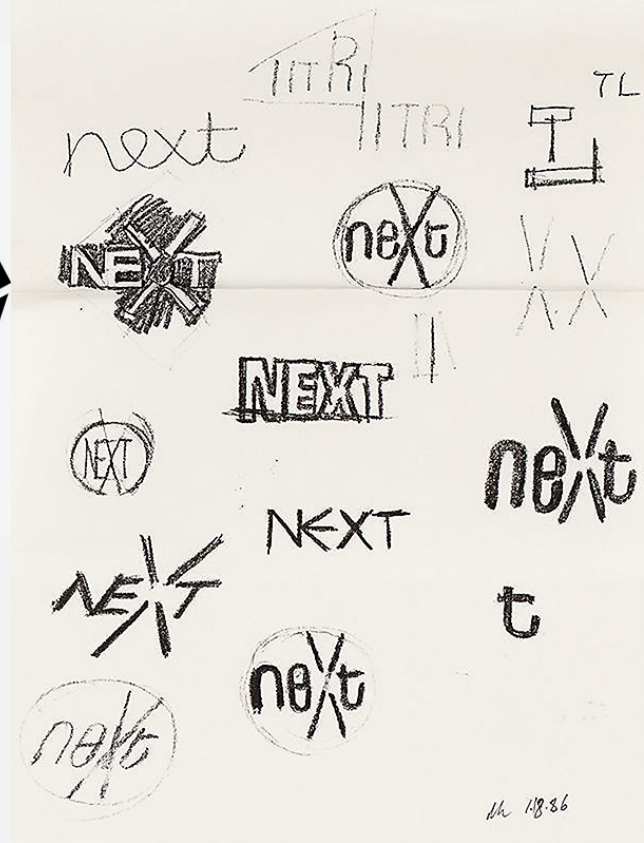 TITRI
TITRI
TL
next
NEXT
neXt
XX
NEXT
NEXT
neXt
NEXT
NEXT
t
neXt
next
1.8.86